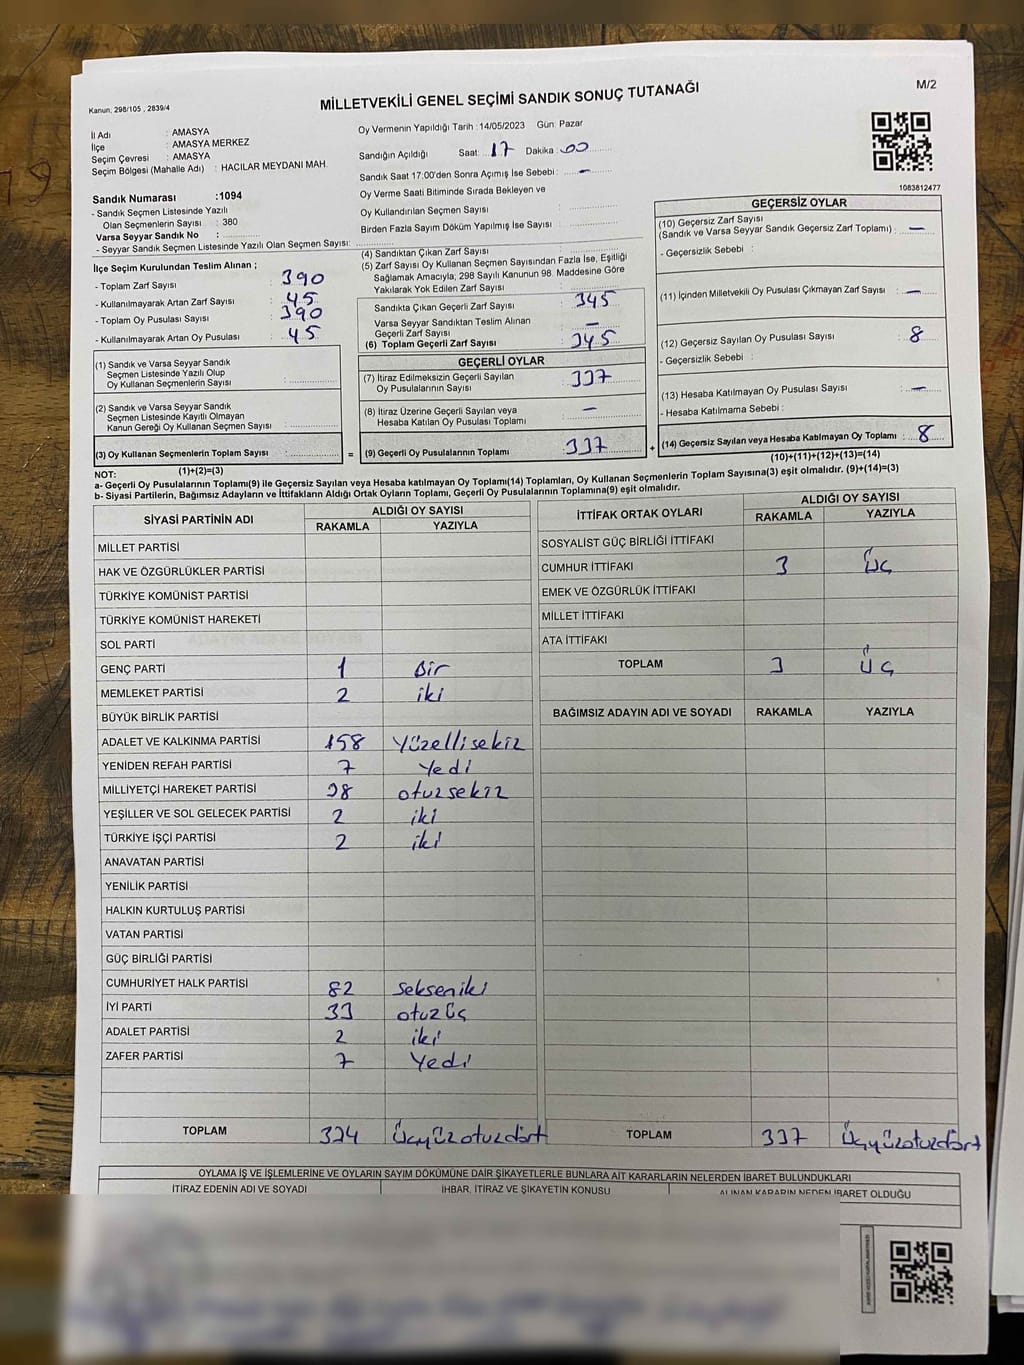 M/2
Kanun; 298/105 , 2839/4
MİLLETVEKİLİ GENEL SEÇİMİ SANDIK SONUÇ TUTANAĞI
İl Adı : AMASYA
İlçe : AMASYA MERKEZ
Seçim Çevresi : AMASYA
Seçim Bölgesi (Mahalle Adı) : HACILAR MEYDANI MAH.
Sandık Numarası :1094
- Sandık Seçmen Listesinde Yazılı
Olan Seçmenlerin Sayısı : 380
Varsa Seyyar Sandık No :
- Seyyar Sandık Seçmen Listesinde Yazılı Olan Seçmen Sayısı:
İlçe Seçim Kurulundan Teslim Alınan ;
- Toplam Zarf Sayısı : 390
- Kullanılmayarak Artan Zarf Sayısı : 45
- Toplam Oy Pusulası Sayısı : 390
- Kullanılmayarak Artan Oy Pusulası : 45
(1) Sandık ve Varsa Seyyar Sandık
Seçmen Listesinde Yazılı Olup
Oy Kullanan Seçmenlerin Sayısı :
(2) Sandık ve Varsa Seyyar Sandık
Seçmen Listesinde Kayıtlı Olmayan
Kanun Gereği Oy Kullanan Seçmen Sayısı :
(3) Oy Kullanan Seçmenlerin Toplam Sayısı :
(1)+(2)=(3)
Oy Vermenin Yapıldığı Tarih :14/05/2023 Gün: Pazar
Sandığın Açıldığı Saat: 17 Dakika : 00
Sandık Saat 17:00'den Sonra Açımış İse Sebebi : -
Oy Verme Saati Bitiminde Sırada Bekleyen ve
Oy Kullandırılan Seçmen Sayısı :
Birden Fazla Sayım Döküm Yapılmış İse Sayısı :
(4) Sandıktan Çıkan Zarf Sayısı :
(5) Zarf Sayısı Oy Kullanan Seçmen Sayısından Fazla İse, Eşitliği
Sağlamak Amacıyla; 298 Sayılı Kanunun 98. Maddesine Göre
Yakılarak Yok Edilen Zarf Sayısı :
Sandıkta Çıkan Geçerli Zarf Sayısı : 345
Varsa Seyyar Sandıktan Teslim Alınan
Geçerli Zarf Sayısı : -
(6) Toplam Geçerli Zarf Sayısı : 345
GEÇERLİ OYLAR
(7) İtiraz Edilmeksizin Geçerli Sayılan
Oy Pusulalarının Sayısı : 337
(8) İtiraz Üzerine Geçerli Sayılan veya
Hesaba Katılan Oy Pusulası Toplamı : -
= (9) Geçerli Oy Pusulalarının Toplamı : 337 +
1083812477
GEÇERSİZ OYLAR
(10) Geçersiz Zarf Sayısı
(Sandık ve Varsa Seyyar Sandık Geçersiz Zarf Toplamı) : -
- Geçersizlik Sebebi :
(11) İçinden Milletvekili Oy Pusulası Çıkmayan Zarf Sayısı : -
(12) Geçersiz Sayılan Oy Pusulası Sayısı : 8
- Geçersizlik Sebebi :
(13) Hesaba Katılmayan Oy Pusulası Sayısı : -
- Hesaba Katılmama Sebebi :
(14) Geçersiz Sayılan veya Hesaba Katılmayan Oy Toplamı : 8
(10)+(11)+(12)+(13)=(14)
NOT:
a- Geçerli Oy Pusulalarının Toplamı(9) ile Geçersiz Sayılan veya Hesaba katılmayan Oy Toplamı(14) Toplamları, Oy Kullanan Seçmenlerin Toplam Sayısına(3) eşit olmalıdır. (9)+(14)=(3)
b- Siyasi Partilerin, Bağımsız Adayların ve İttifakların Aldığı Ortak Oyların Toplamı, Geçerli Oy Pusulalarının Toplamına(9) eşit olmalıdır.
SİYASİ PARTİNİN ADI ALDIĞI OY SAYISI
RAKAMLA YAZIYLA
MİLLET PARTİSİ
HAK VE ÖZGÜRLÜKLER PARTİSİ
TÜRKİYE KOMÜNİST PARTİSİ
TÜRKİYE KOMÜNİST HAREKETİ
SOL PARTİ
GENÇ PARTİ 1 Bir
MEMLEKET PARTİSİ 2 iki
BÜYÜK BİRLİK PARTİSİ
ADALET VE KALKINMA PARTİSİ 158 Yüzellisekiz
YENİDEN REFAH PARTİSİ 7 Yedi
MİLLİYETÇİ HAREKET PARTİSİ 38 otuzsekiz
YEŞİLLER VE SOL GELECEK PARTİSİ 2 iki
TÜRKİYE İŞÇİ PARTİSİ 2 iki
ANAVATAN PARTİSİ
YENİLİK PARTİSİ
HALKIN KURTULUŞ PARTİSİ
VATAN PARTİSİ
GÜÇ BİRLİĞİ PARTİSİ
CUMHURİYET HALK PARTİSİ 82 sekseniki
İYİ PARTİ 33 otuzüç
ADALET PARTİSİ 2 iki
ZAFER PARTİSİ 7 Yedi
TOPLAM 334 Üçyüzotuzdört
İTTİFAK ORTAK OYLARI ALDIĞI OY SAYISI
RAKAMLA YAZIYLA
SOSYALİST GÜÇ BİRLİĞİ İTTİFAKI
CUMHUR İTTİFAKI 3 Üç
EMEK VE ÖZGÜRLÜK İTTİFAKI
MİLLET İTTİFAKI
ATA İTTİFAKI
TOPLAM 3 Üç
BAĞIMSIZ ADAYIN ADI VE SOYADI RAKAMLA YAZIYLA
TOPLAM 337 Üçyüzotuzdört
OYLAMA İŞ VE İŞLEMLERİNE VE OYLARIN SAYIM DÖKÜMÜNE DAİR ŞİKAYETLERLE BUNLARA AİT KARARLARIN NELERDEN İBARET BULUNDUKLARI
İTİRAZ EDENİN ADI VE SOYADI İHBAR, İTİRAZ VE ŞİKAYETİN KONUSU ALINAN KARARIN NEDEN İBARET OLDUĞU